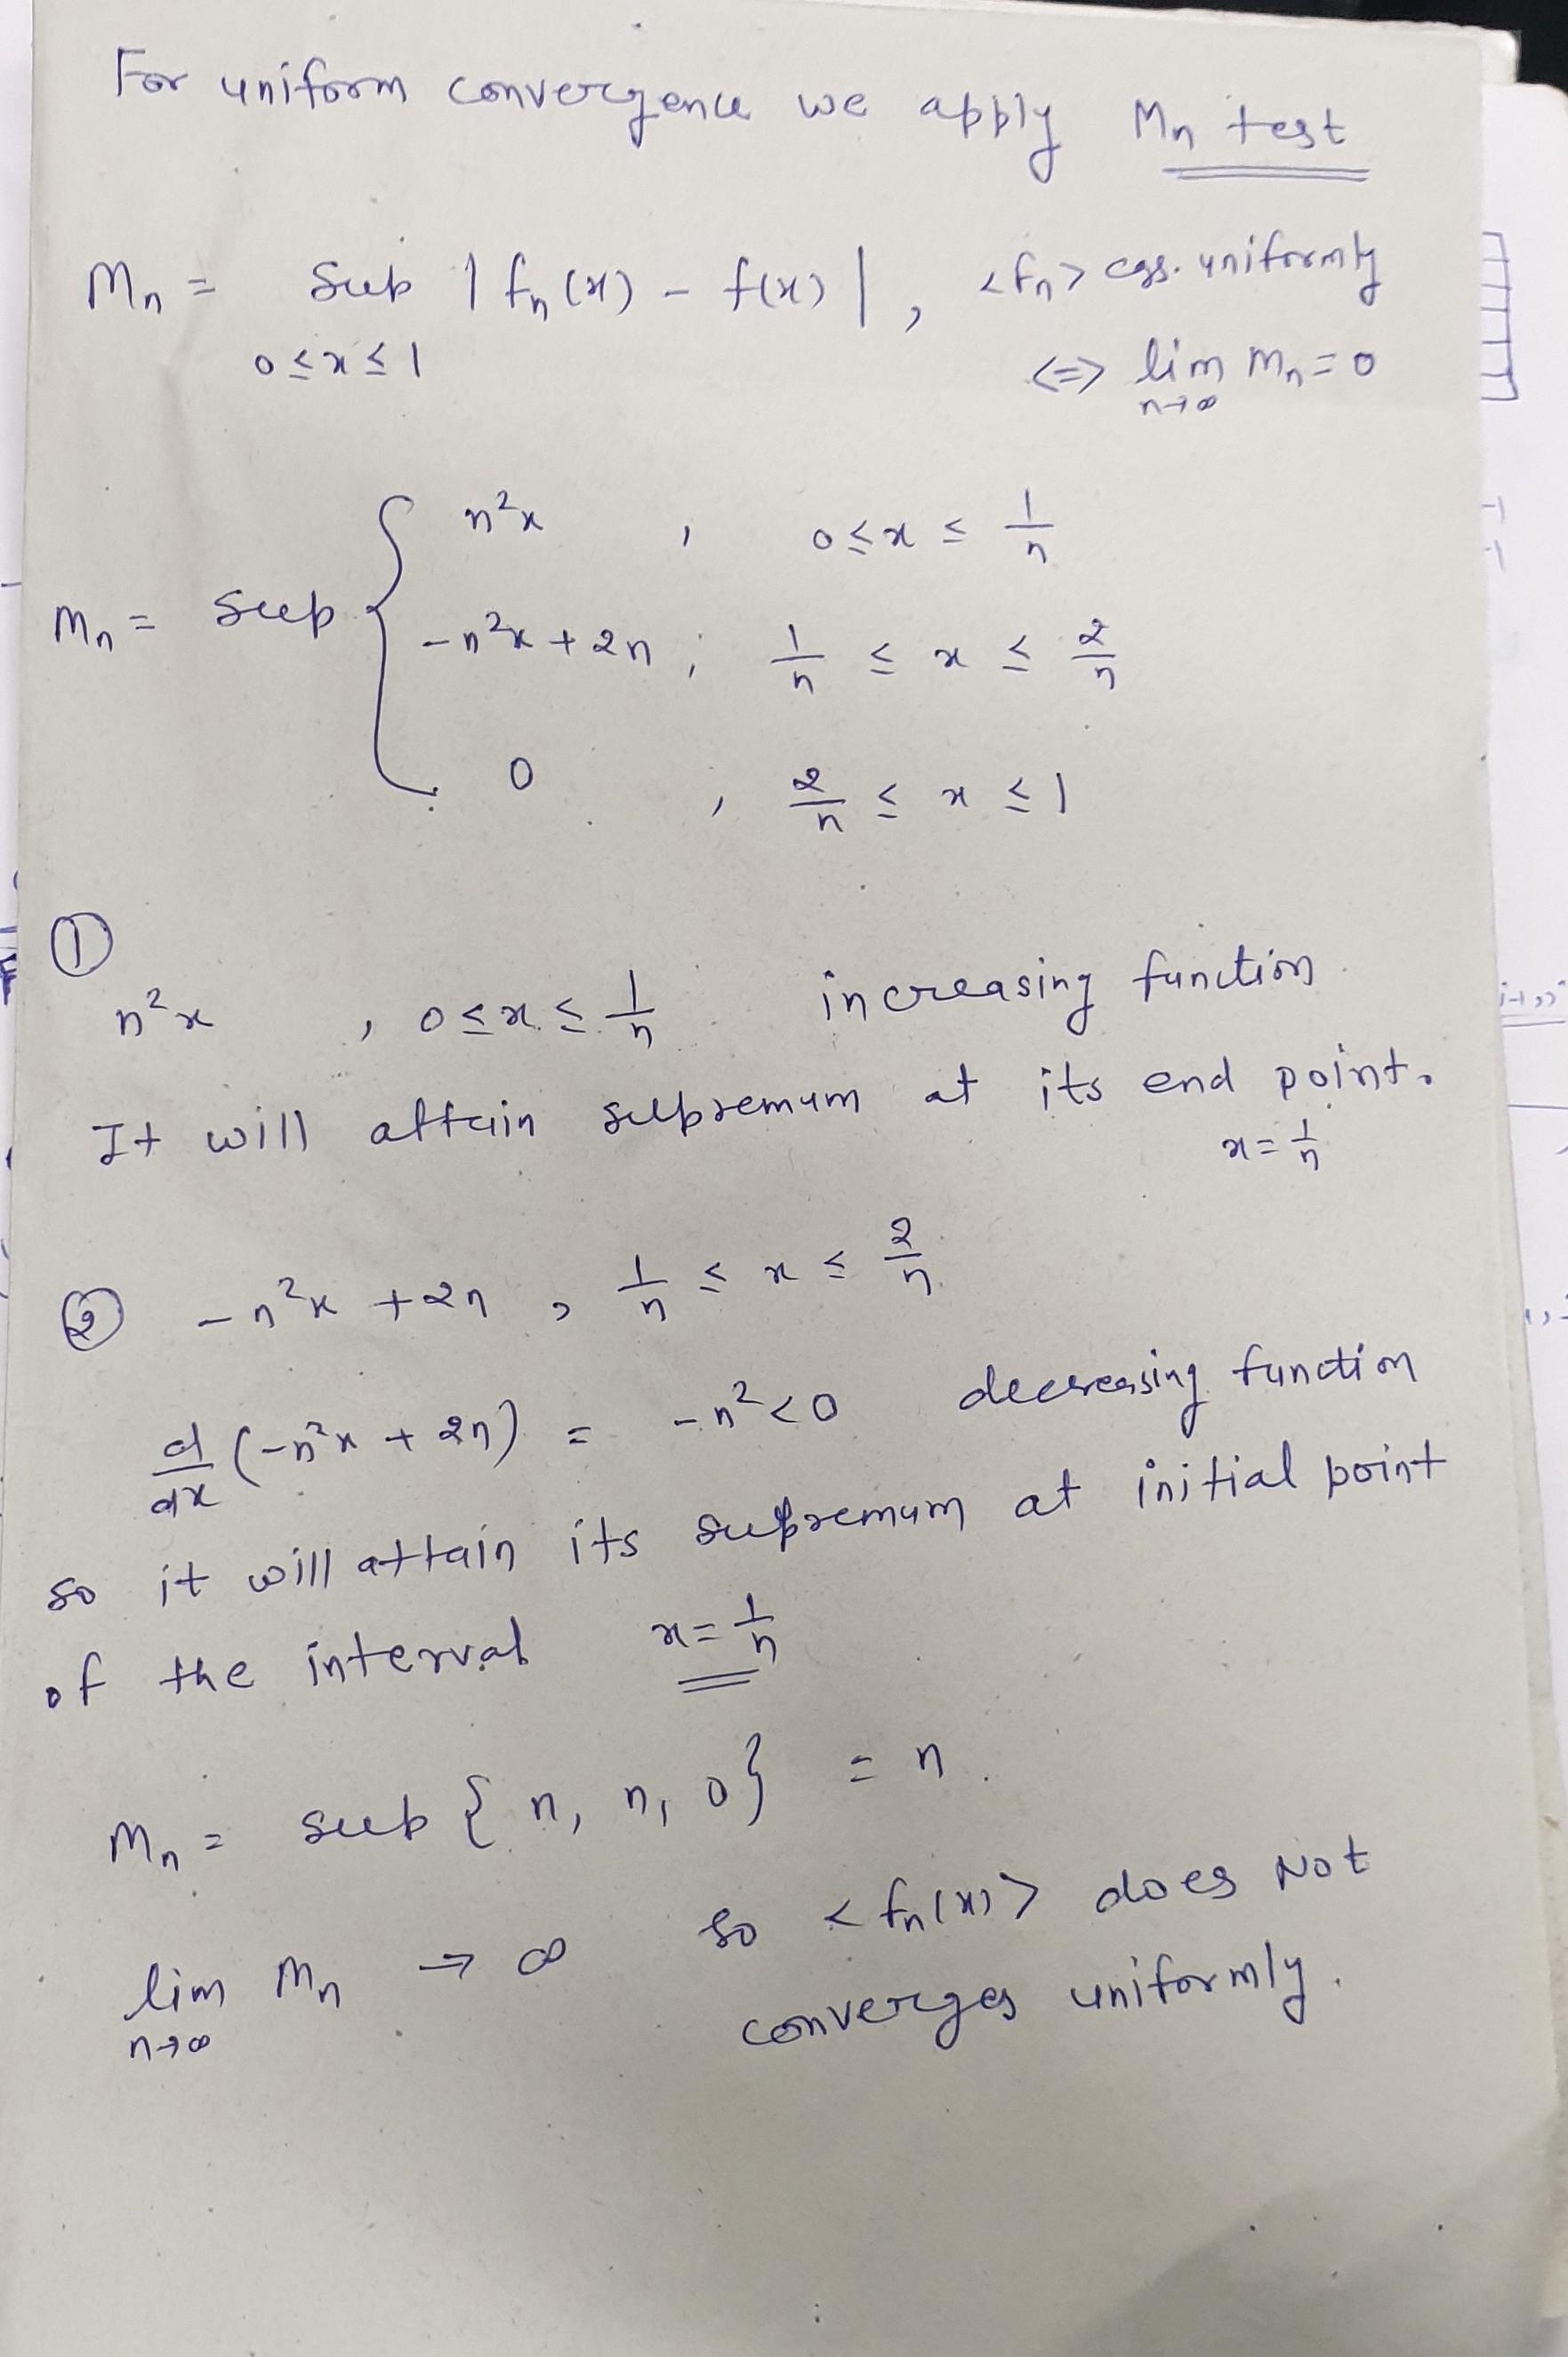 For uniform convergence we apply Mn test
Mn = Sup | fn(x) - f(x) | , <fn> cgs. uniformly
0≤x≤1 <=> lim Mn = 0
n→∞
n²x , 0≤x≤ 1/n
Mn = Sup { -n²x + 2n ; 1/n ≤ x ≤ 2/n
0 , 2/n ≤ x ≤ 1
①
n²x , 0≤x≤ 1/n increasing function
It will attain supremum at its end point.
x = 1/n
② -n²x + 2n , 1/n ≤ x ≤ 2/n
d/dx (-n²x + 2n) = -n² < 0 decreasing function
so it will attain its supremum at initial point
of the interval x = 1/n
Mn = sup { n, n, 0 } = n.
lim Mn → ∞ so <fn(x)> does Not
n→∞
converges uniformly.